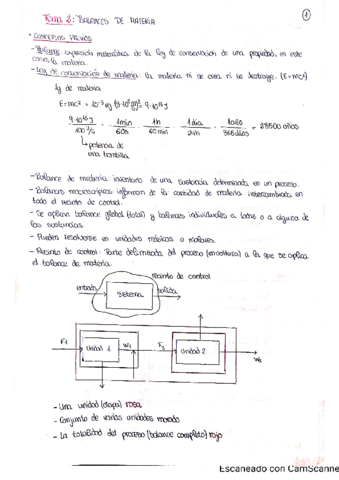 Tema 2: BALANCES DE MATERIA
1
• CONCEPTOS PREVIOS
- Balance: expresión matemática de la ley de conservación de una propiedad, en este
caso, la materia.
- Ley de conservación de materia: la materia ni se crea ni se destruye. (E=mc²)
1g de materia
E=mc² = 10⁻³ kg
9·10¹³ J
100 J/s
1min
60s
1h
60 min
1 día
24h
1 año
365 días
= 28500 años
↳ potencia de
una bombilla
- Balance de materia: inventario de una sustancia determinada en un proceso.
- Balances macroscópicos: informan de la cantidad de materia intercambiada en
todo el recinto de control.
- Se aplican balance global (total) y balances individuales a todos o a alguna de
las sustancias.
- Pueden resolverse en unidades másicas o molares.
- Recinto de control: Parte delimitada del proceso (encontramos) a la que se aplica
el balance de materia.
recinto de control
entrada
Sistema
salida
F1
Unidad 1
W1
F2
Unidad 2
W2
- Una unidad (etapa) rosa
- Conjunto de varias unidades morado
- La totalidad del proceso (balance completo) rojo
Escaneado con CamScanne